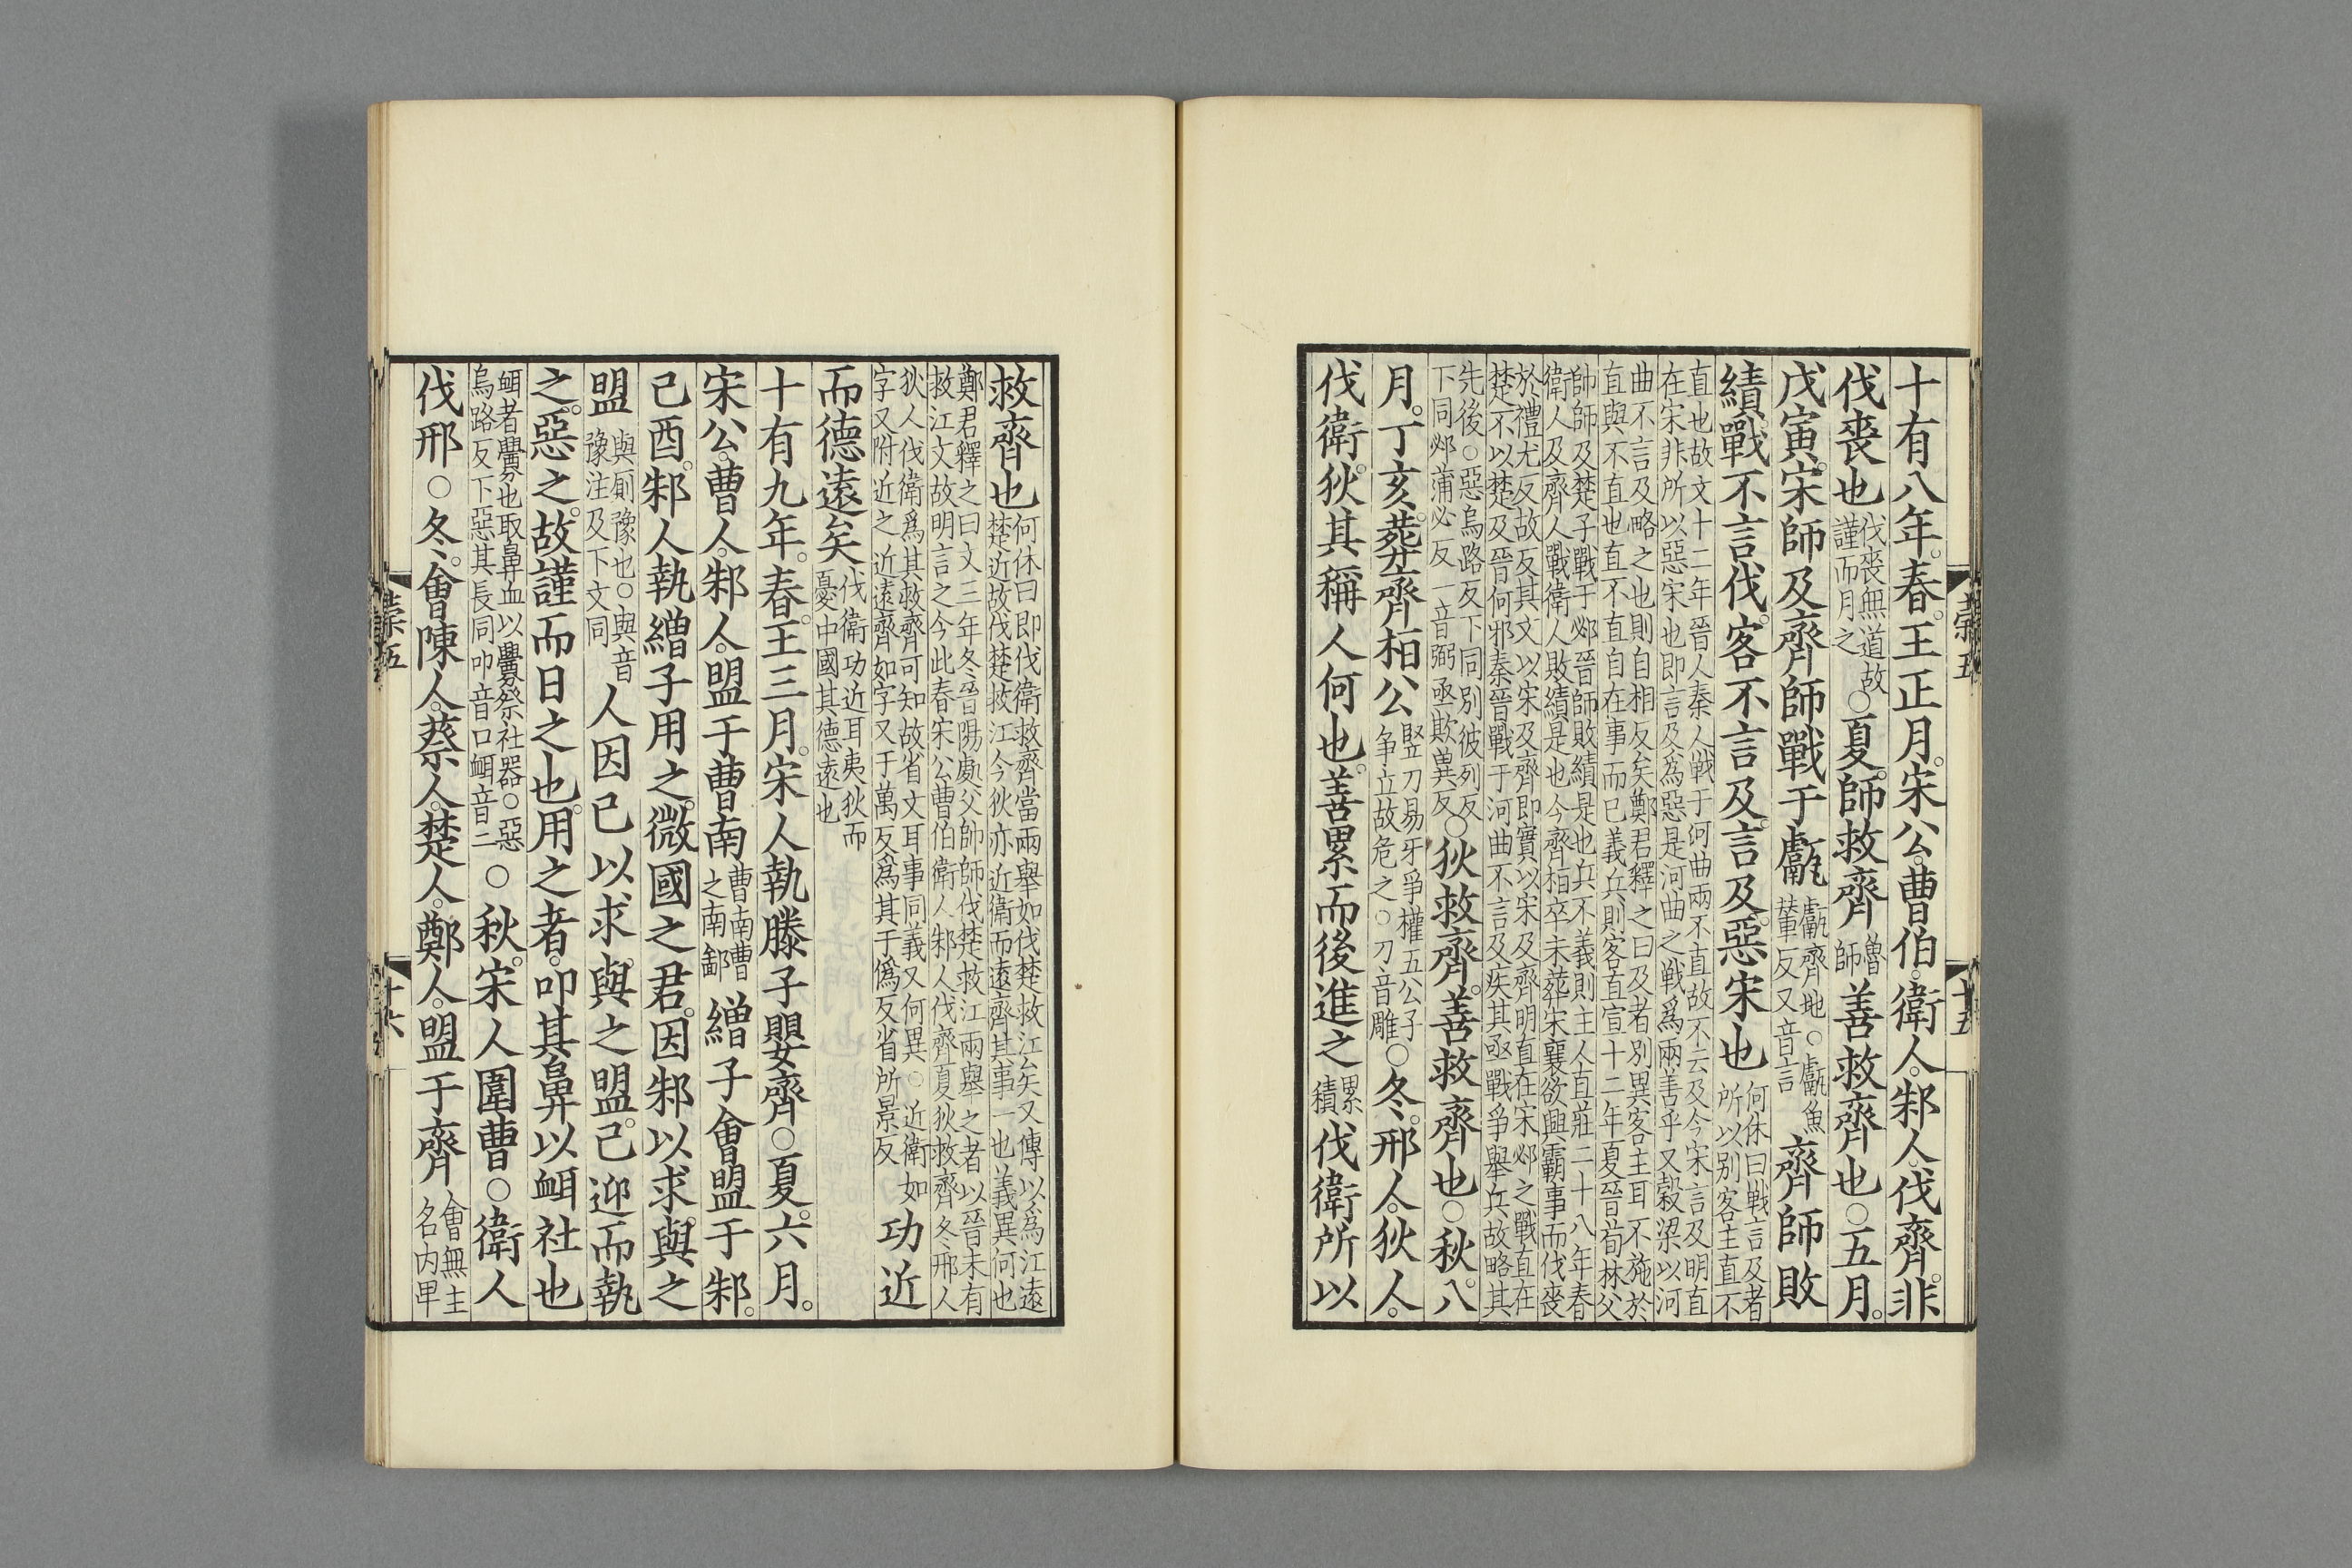 十有八年。春。王正月。宋公。曹伯。衛人。邾人。伐齊。非
伐喪也伐喪無道故謹而月之○夏。師救齊魯師善救齊也○五月。
戊寅。宋師及齊師戰于甗甗齊地○甗魚輦反又音言齊師敗
績。戰不言伐。客不言及。言及。惡宋也何休曰戰言及者所以别客主直不
直也故文十二年晉人秦人戰于河曲兩不直故不云及今宋言及明直
在宋非所以惡宋也即言及爲惡是河曲之戰爲兩善乎又穀梁以河
曲不言及略之也則自相反矣鄭君釋之曰及者别異客主耳不施於
直與不直也直不直自在事而已義兵則客直宣十二年夏晉荀林父
帥師及楚子戰于邲晉師敗績是也兵不義則主人直莊二十八年春
衛人及齊人戰衛人敗績是也今齊桓卒未葬宋襄欲興霸事而伐喪
於禮尤反故反其文以宋及齊即實以宋及齊明直在宋邲之戰直在
楚不以楚及晉何邪秦晉戰于河曲不言及疾其亟戰爭舉兵故略其
先後○惡烏路反下同别彼列反下同邲蒲必反一音弼亟欺兾反○狄救齊。善救齊也○秋。八
月。丁亥。葬齊桓公豎刀易牙爭權五公子争立故危之○刀音雕○冬。邢人。狄人。
伐衛。狄其稱人何也。善累而後進之累積伐衛所以
救齊也何休曰即伐衛救齊當兩舉如伐楚救江矣又傳以爲江遠楚近故伐楚救江今狄亦近衛而遠齊其事一也義異何也
鄭君釋之曰文三年冬晉陽處父帥師伐楚救江兩舉之者以晉未有
救江文故明言之今此春宋公曹伯衛人邾人伐齊夏狄救齊冬邢人
狄人伐衛爲其救齊可知故省文耳事同義又何異○近衛如字又附近之近遠齊如字又于萬反爲其于僞反省所景反功近
而德遠矣伐衛功近耳夷狄而憂中國其德遠也
十有九年。春。王三月。宋人執滕子嬰齊○夏。六月。
宋公。曹人。邾人。盟于曹南曹南曹之南鄙繒子會盟于邾。
己酉。邾人執繒子用之。微國之君。因邾以求。與之
盟與厠豫也○與音豫注及下文同人因已以求。與之盟。己迎而執
之。惡之。故謹而日之也。用之者。叩其鼻以衈社也
衈者釁也取鼻血以釁祭社器○惡烏路反下惡其長同叩音口衈音二○秋。宋人圍曹○衛人
伐邢○冬。會陳人。蔡人。楚人。鄭人。盟于齊會無主名内卑